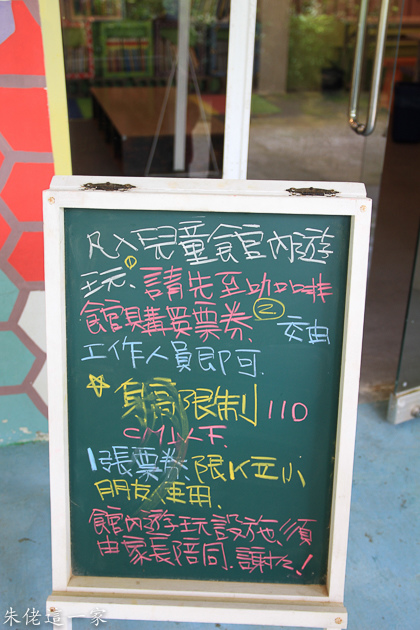 凡入兒童館內遊
玩、①請先至咖啡
館購買票券②交由
工作人員即可.
☆身高限制110
CM以下.
1張票券.限1位小
朋友使用.
館內遊玩設施、須
由家長陪同.謝謝!
朱佬這一家